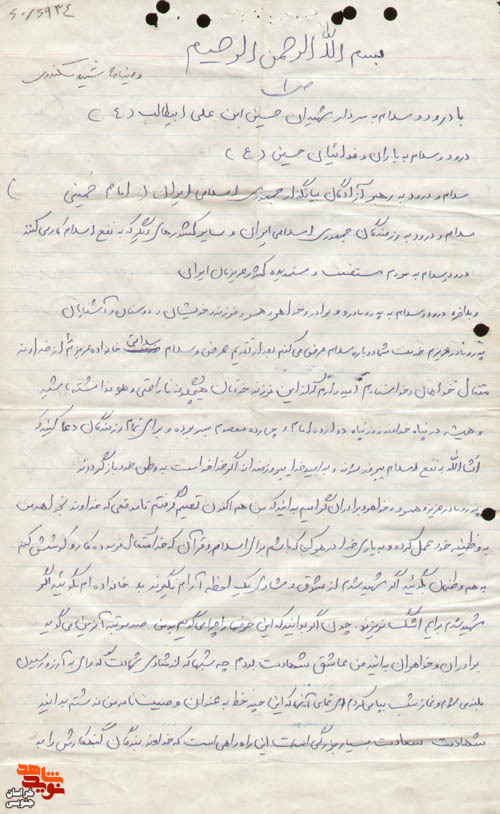 ۵۰/۵۹۳۴
بسم الله الرحمن الرحیم
ص ۱
وصیتنامه شهید سکندری
با درود و سلام به سردار شهیدان حسین ابن علی ابیطالب (ع)
درود و سلام به یاران و فدائیان حسین (ع)
سلام و درود به رهبر آزادگان بنیانگذار جمهوری اسلامی ایران (امام خمینی)
سلام و درود به رزمندگان جمهوری اسلامی ایران و سایر کشورهای دیگر که به نفع اسلام کار می کنند
درود و سلام به مردم مستضعف و ستمدیده کشور عزیزمان ایران
و بالاخره درود و سلام به پدر و مادر و برادر و خواهر و همسر و فرزند و خویشان و دوستان و آشنایان
پدر و مادر عزیزم خدمت شما دوباره سلام عرض می کنم بعد از تقدیم عرض و سلام سلامتی خانواده عزیزم را از خداوند
متعال خواهان و خواستارم امیدوارم که از این فرزند خودتان هیچگونه ناراحتی و هم نداشته باشید
و همیشه در پناه خداوند و در پناه دوازده امام و چهارده معصوم بوده و برای تمام رزمندگان دعا کنید که
انشاالله به نفع اسلام پیروز شوند و به امید خدا پیروزمندان اگر خدا خواست به وطن خود بازگردند
پدر و مادر عزیز و همسر و خواهر و برادران گرامیم بدانید که من هم اکنون تصمیم گرفتم تا موقعی که خداوند بخواهد من
به وظیفه خود عمل کرده و به یاری خدا در هر کجا که باشم برای اسلام و قرآن که خدا متعال فرموده کار و کوشش کنم
به هم وطنان بگوئید اگر شهید شدم از شوق و شادی یک لحظه آرام نگیرند به خانواده ام بگوئید اگر
شهید شدم برایم اشک نریزید چون اگر بدانید که این حرفها را چرا می گویم به من صد مرتبه آفرین می گویید
برادران و خواهران بدانید من عاشق شهادت بودم چه شبها که از شادی شهادت گریه می
بلندی و نماز شب بپا می کردم تمامی آنها که این چند خط به عنوان وصیت نامه من نوشتم بدانید
شهادت سعادت بسیار بزرگی است این راه راهی است که خداوند بندگان گنهکارش را به
شاهد
نوید
خراسان
جنوبی